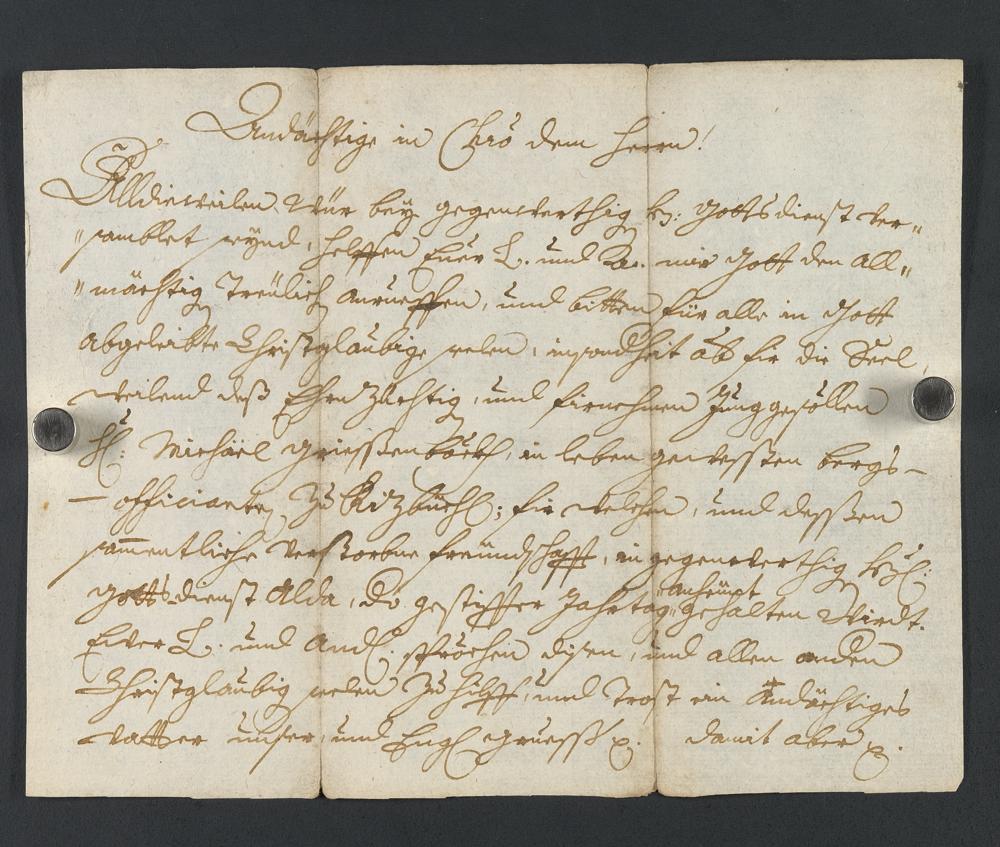 Andächtige in Chrō dem Herrn!
Alldieweilen Wür bey gegenwerthig h: Gottsdienst ver„
„samblet seynd, helffen Euer L. und An. mir Gott den All„
„mächtig Treülich anrueffen, und bitten für alle in Gott
Abgeleibte Christglaubige seelen, insondheit ab fir die Seel,
weilend deß Ehrnzüchtig, und firnehmen Junggesöllen
H: Michäel Griessenböckh, in leben gewessten bergs-
- officianten Zu Kizbüchl; fir welchen, und dessen
sammentliche Verstorbne freündschafft, in gegenwerthig
Gotts-dienst Alda, gestiffter Jahrtag anheünt gehalten Wirdt.
Eüer L. und And. spröchen disen, und allen anden
Christglaubig seelen Zu hülff, und Trost ein Andächtiges
vatter unser, und Engl: gruess p. damit aber p.